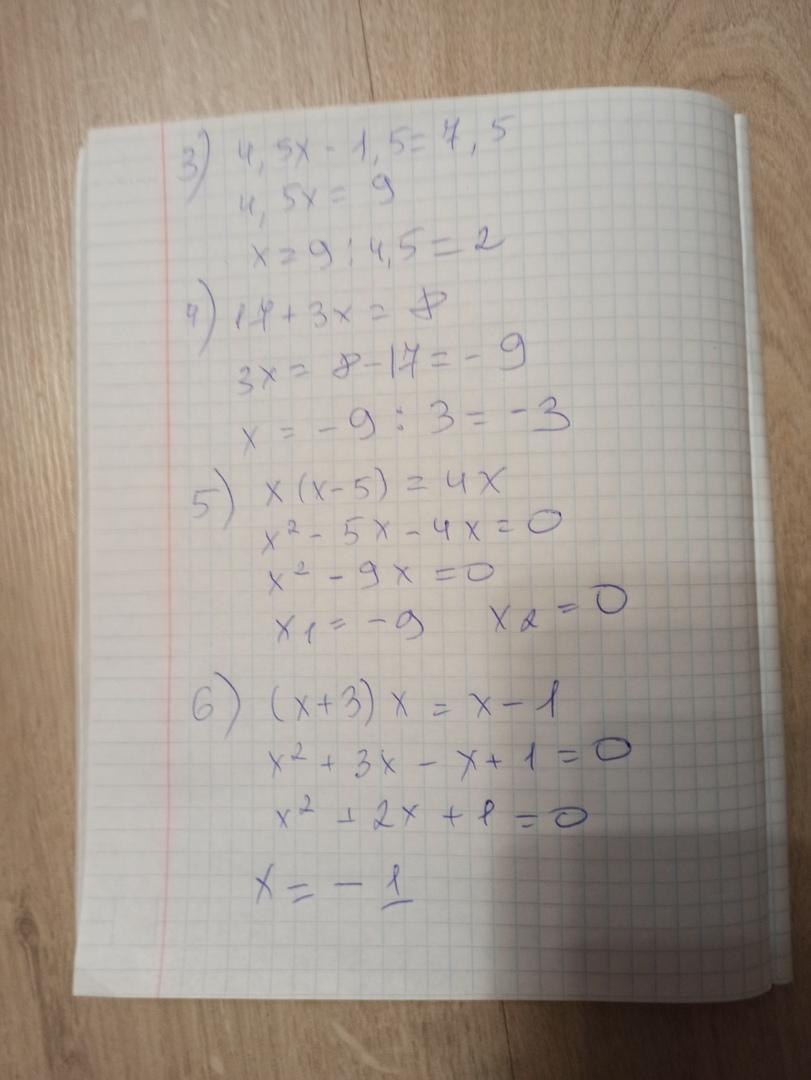 3) 4,5x - 1,5 = 7,5
4,5x = 9
x = 9 : 4,5 = 2
4) 17 + 3x = 8
3x = 8 - 17 = - 9
x = - 9 : 3 = - 3
5) x (x - 5) = 4x
x² - 5x - 4x = 0
x² - 9x = 0
x₁ = - 9 x₂ = 0
6) (x + 3) x = x - 1
x² + 3x - x + 1 = 0
x² + 2x + 1 = 0
x = - 1